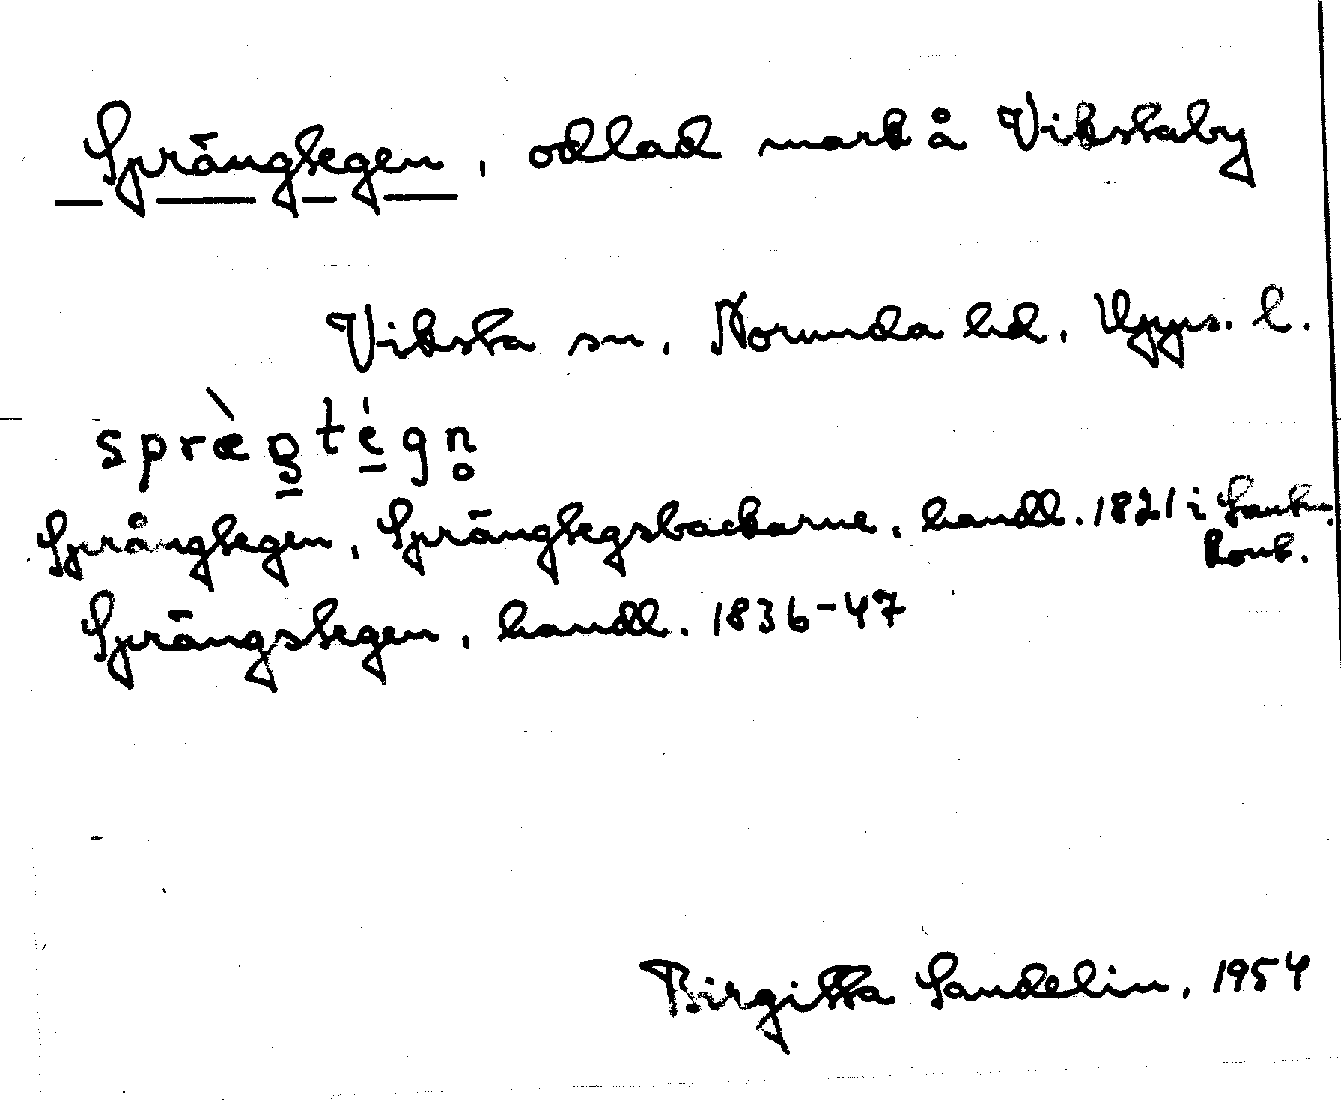 Sprängtegen, odlad mark å Vikstaby
Viksta sn, Norunda hd, Upps. l.
spræ̀ŋtégn̥
Språngtegen, Sprängtegsbackarne, handl. 1821 i Lantm.
Kont.
Sprängstegen, handl. 1836-47
Birgitta Sandelin, 1954